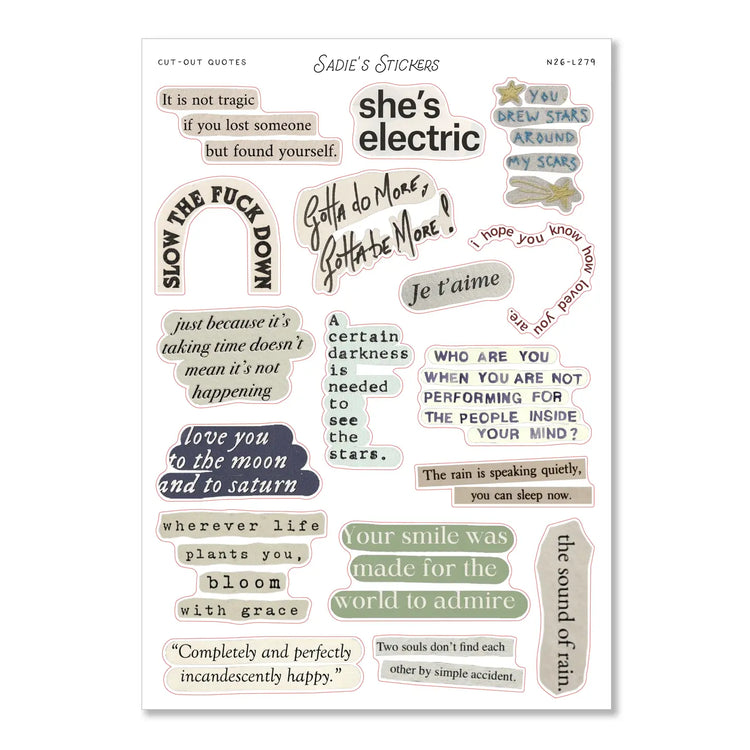 CUT-OUT QUOTES
SADIE'S STICKERS
N26-L279
It is not tragic
if you lost someone
but found yourself.
she's
electric
YOU
DREW STARS
AROUND
MY SCARS
SLOW THE FUCK DOWN
Gotta do More,
Gotta be More!
i hope you know how loved you are.
Je t'aime
just because it's
taking time doesn't
mean it's not
happening
A
certain
darkness
is
needed
to
see
the
stars.
WHO ARE YOU
WHEN YOU ARE NOT
PERFORMING FOR
THE PEOPLE INSIDE
YOUR MIND?
love you
to the moon
and to saturn
The rain is speaking quietly,
you can sleep now.
wherever life
plants you,
bloom
with grace
Your smile was
made for the
world to admire
the sound of rain.
“Completely and perfectly
incandescently happy.”
Two souls don't find each
other by simple accident.